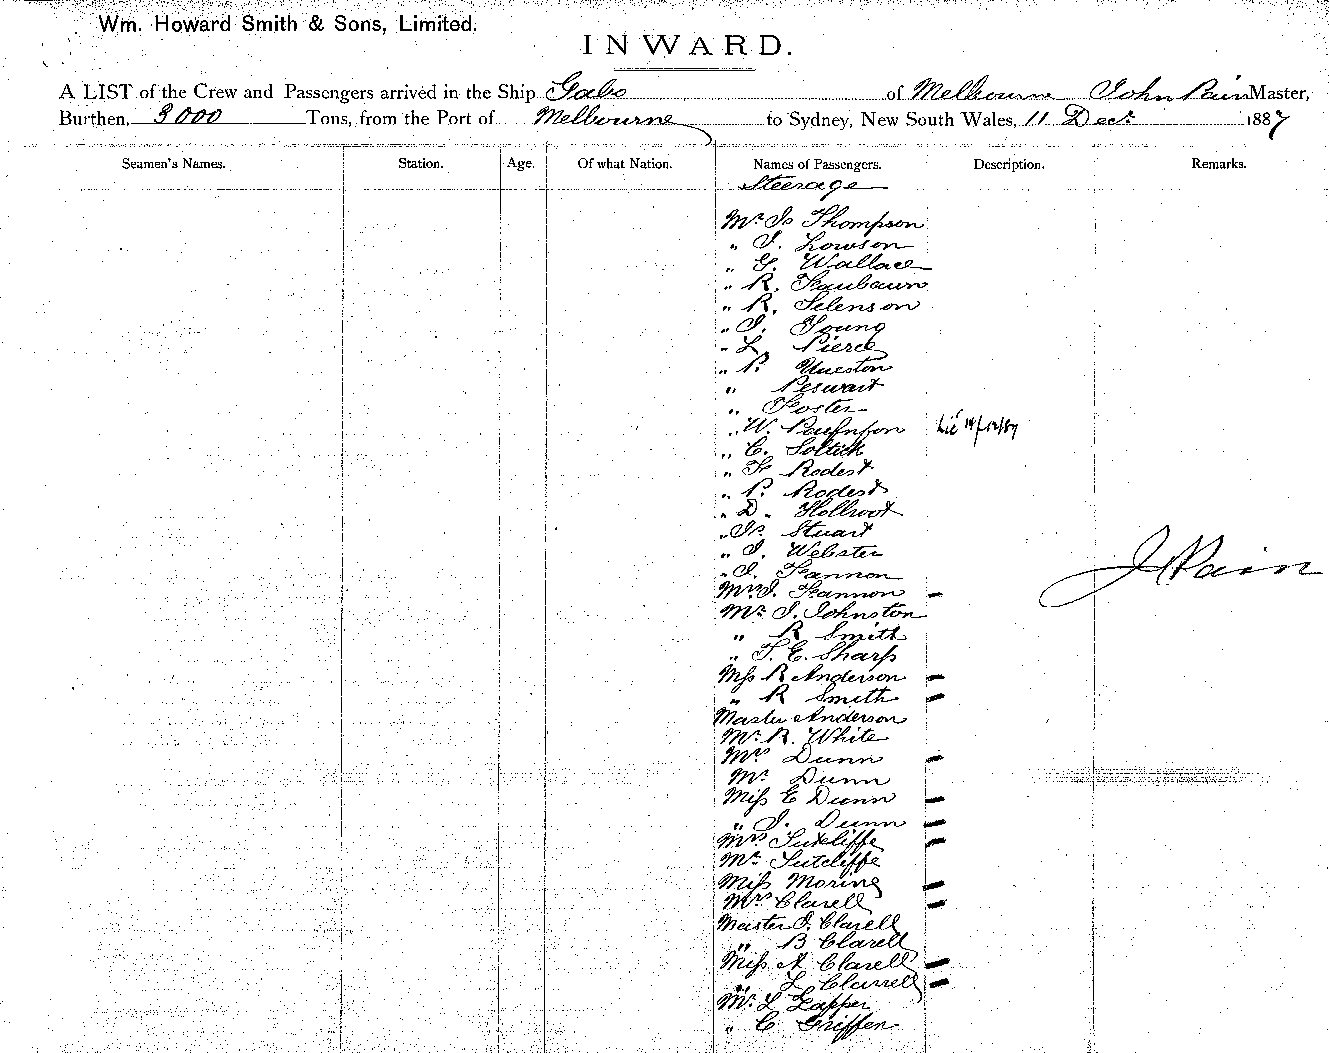 Wm. Howard Smith & Sons, Limited.
INWARD.
A LIST of the Crew and Passengers arrived in the Ship Gabo of Melbourne John Pain Master,
Burthen, 3000 Tons, from the Port of Melbourne to Sydney, New South Wales, 11 Decr. 1887
Seamen's Names. Station. Age. Of what Nation. Names of Passengers. Description. Remarks.
Steerage
Mr Js Thompson
" J. Lowson
" G. Wallace
" R.
" R. Selenson
" J. Young
" L Pierce
" P.
"
" Foster
" W.
" C. Soltick
" Fs Rodest
" P. Rodest
" D. Hollroot
" Js. Stuart
" J. Webster
" J. Fannon
Mrs J. Fannon
Mr J. Johnston
" R Smith
" T. E. Sharp
Miss R Anderson
" R Smith
Master Anderson
Mr R. White
Mrs Dunn
Mr Dunn
Miss E Dunn
" J. Dunn
Mrs Sutcliffe
Mr Sutcliffe
Miss Morine
Mrs Clarell
Master J. Clarell
" B Clarell
Miss A Clarell
" L Clarrell
Mr. L Zapper
" C Griffen
J Pain